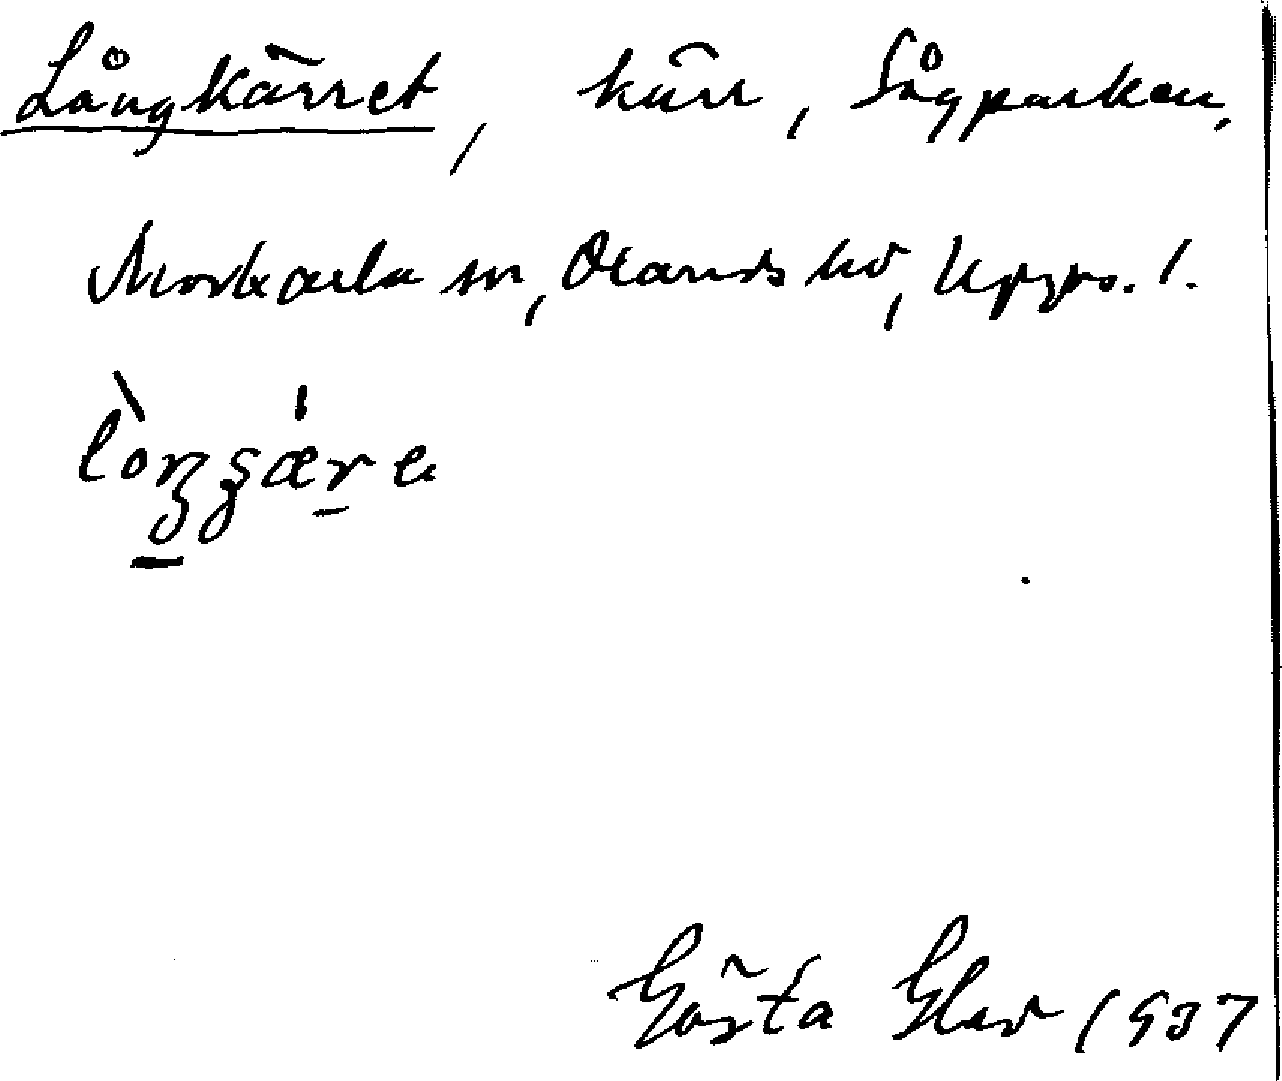 Långkärret, kärr, Sågparken,
Morkarla sn, Olands hd, Upps. l.
Gösta Glad 1937